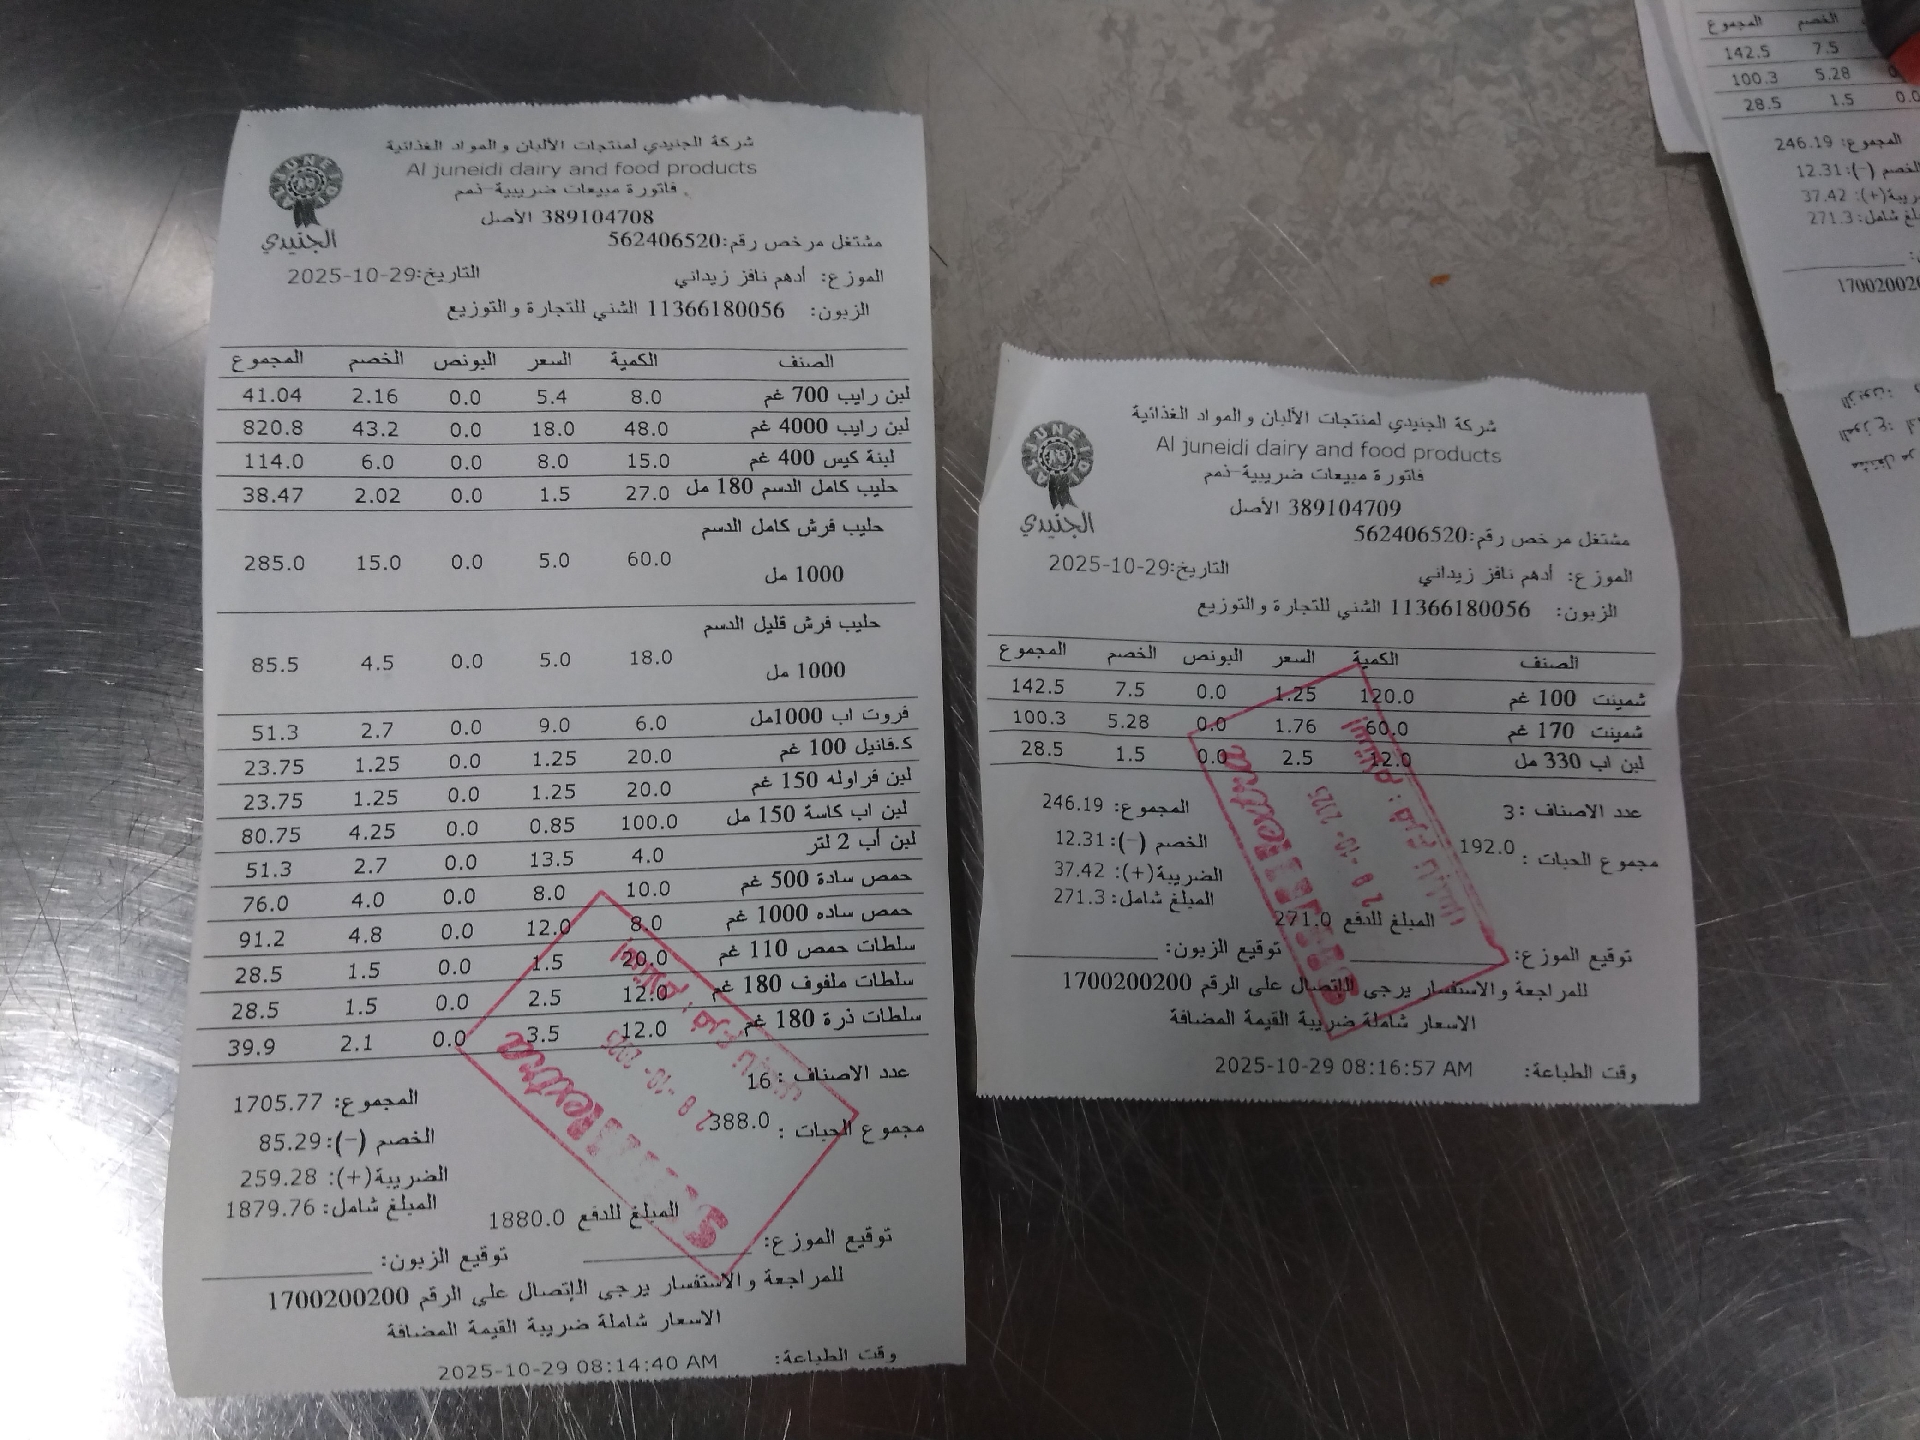 شركة الجنيدي لمنتجات الألبان والمواد الغذائية
Al juneidi dairy and food products
فاتورة مبيعات ضريبية-ذمم
389104708 الأصل
الجنيدي
مشتغل مرخص رقم:562406520
الموزع: أدهم نافز زيداني التاريخ:2025-10-29
الزبون: 11366180056 الشني للتجارة والتوزيع
الصنف الكمية السعر البونص الخصم المجموع
لبن رايب 700 غم 8.0 5.4 0.0 2.16 41.04
لبن رايب 4000 غم 48.0 18.0 0.0 43.2 820.8
لبنة كيس 400 غم 15.0 8.0 0.0 6.0 114.0
حليب كامل الدسم 180 مل 27.0 1.5 0.0 2.02 38.47
حليب فرش كامل الدسم
1000 مل 60.0 5.0 0.0 15.0 285.0
حليب فرش قليل الدسم
1000 مل 18.0 5.0 0.0 4.5 85.5
فروت اب 1000مل 6.0 9.0 0.0 2.7 51.3
ك.فانيل 100 غم 20.0 1.25 0.0 1.25 23.75
لبن فراوله 150 غم 20.0 1.25 0.0 1.25 23.75
لبن اب كاسة 150 مل 100.0 0.85 0.0 4.25 80.75
لبن أب 2 لتر 4.0 13.5 0.0 2.7 51.3
حمص سادة 500 غم 10.0 8.0 0.0 4.0 76.0
حمص ساده 1000 غم 8.0 12.0 0.0 4.8 91.2
سلطات حمص 110 غم 20.0 1.5 0.0 1.5 28.5
سلطات ملفوف 180 غم 12.0 2.5 0.0 1.5 28.5
سلطات ذرة 180 غم 12.0 3.5 0.0 2.1 39.9
عدد الاصناف : 16
المجموع: 1705.77
مجموع الحبات : 388.0
الخصم (-): 85.29
الضريبة(+): 259.28
المبلغ شامل: 1879.76
المبلغ للدفع 1880.0
توقيع الموزع:
توقيع الزبون:
للمراجعة والاستفسار يرجى الإتصال على الرقم 1700200200
الاسعار شاملة ضريبة القيمة المضافة
وقت الطباعة: 2025-10-29 08:14:40 AM
Rextra
شركة الجنيدي لمنتجات الألبان والمواد الغذائية
Al juneidi dairy and food products
فاتورة مبيعات ضريبية-ذمم
389104709 الأصل
الجنيدي
مشتغل مرخص رقم:562406520
الموزع: أدهم نافز زيداني التاريخ:2025-10-29
الزبون: 11366180056 الشني للتجارة والتوزيع
الصنف الكمية السعر البونص الخصم المجموع
شمينت 100 غم 120.0 1.25 0.0 7.5 142.5
شمينت 170 غم 60.0 1.76 0.0 5.28 100.3
لبن اب 330 مل 12.0 2.5 0.0 1.5 28.5
عدد الاصناف : 3
المجموع: 246.19
مجموع الحبات : 192.0
الخصم (-): 12.31
الضريبة(+): 37.42
المبلغ شامل: 271.3
المبلغ للدفع 271.0
توقيع الموزع:
توقيع الزبون:
للمراجعة والاستفسار يرجى الإتصال على الرقم 1700200200
الاسعار شاملة ضريبة القيمة المضافة
وقت الطباعة: 2025-10-29 08:16:57 AM
Rextra
الخصم المجموع
7.5 142.5
5.28 100.3
1.5 28.5
المجموع: 246.19
الخصم (-): 12.31
37.42
شامل: 271.3